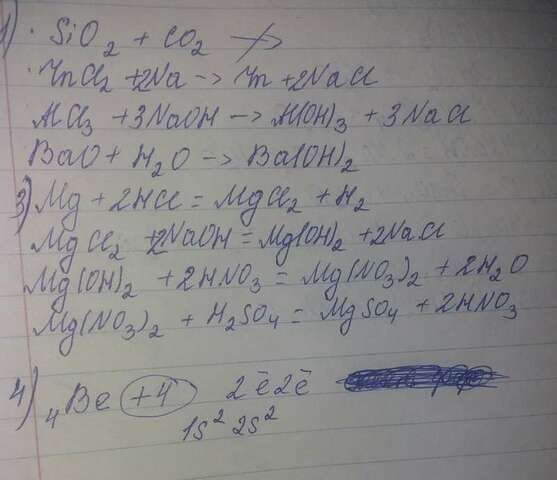 1) SiO₂ + CO₂ ↛
ZnCl₂ + 2Na → Zn + 2NaCl
AlCl₃ + 3NaOH → Al(OH)₃ + 3NaCl
BaO + H₂O → Ba(OH)₂
3) Mg + 2HCl = MgCl₂ + H₂
MgCl₂ + 2NaOH = Mg(OH)₂ + 2NaCl
Mg(OH)₂ + 2HNO₃ = Mg(NO₃)₂ + 2H₂O
Mg(NO₃)₂ + H₂SO₄ = MgSO₄ + 2HNO₃
4) ₄Be +4 2ē2ē
1s² 2s²